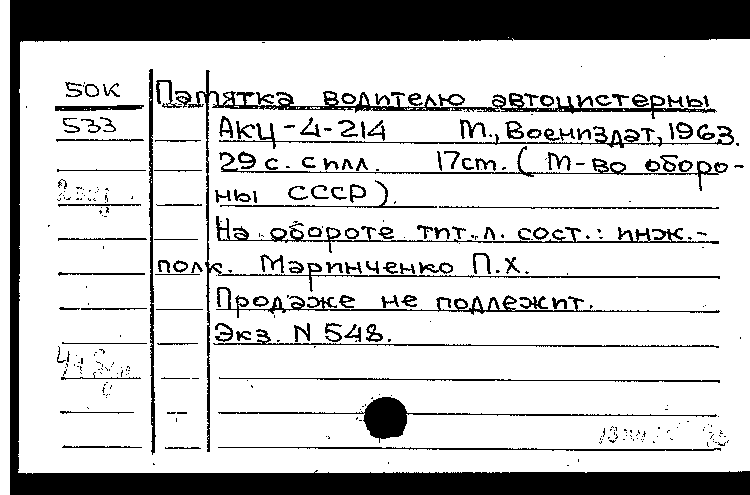 50К Памятка водителю автоцистерны
533 АКЦ-4-214 М., Воениздат, 1963.
29 с. с илл. 17 см. (М-во оборо-
ны СССР).
На обороте тит. л. сост.: инж.-
полк. Маринченко П.Х.
Продаже не подлежит.
Экз. N 548.